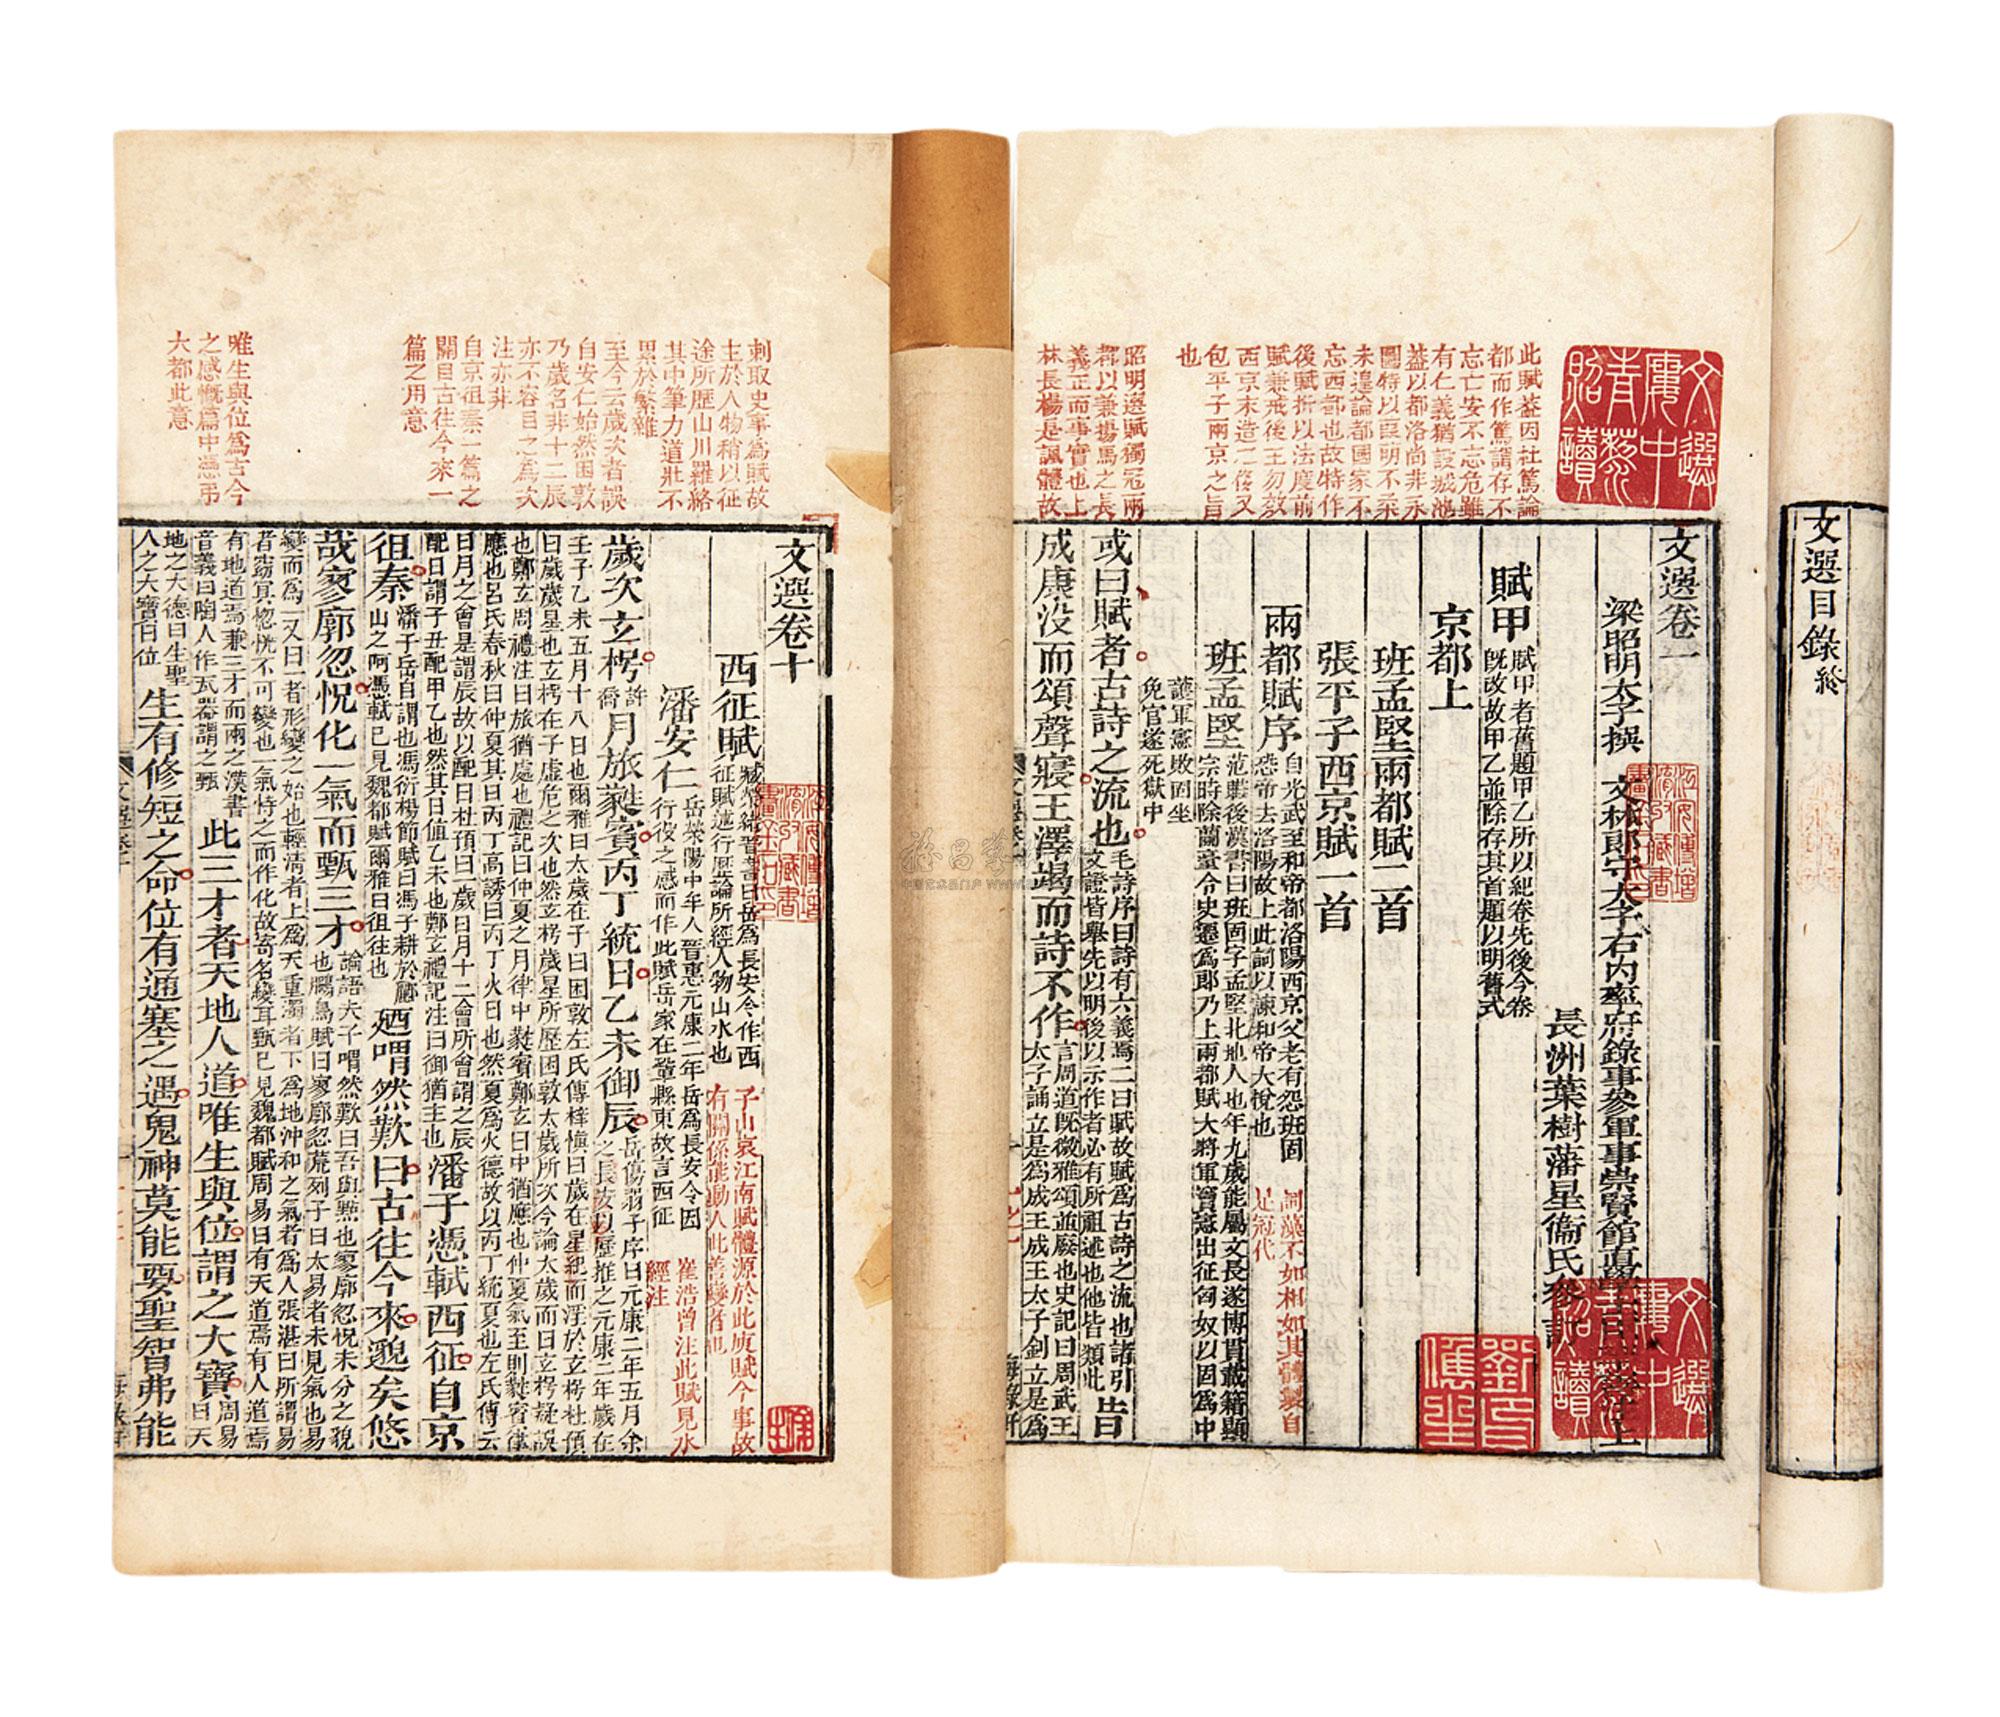 文選目錄終
此賦蓋因杜篤論
都而作篤謂存不
忘亡安不忘危雖
有仁義猶設城池
蓋以都洛尚非永
圖特以臣明不乘
未遑論都國家不
忘西都也故特作
後賦折以法度前
賦兼戒後王勿效
西京末造之侈又
包平子兩京之旨
也
昭明選賦獨冠兩
都以兼揚馬之長
義正而事實也上
林長楊是諷體故
文選卷一
梁昭明太子撰
文林郎守太子右內率府錄事參軍事崇賢館直學士臣李善注上
長洲葉樹藩星衞氏參訂
賦甲
賦甲者舊題甲乙所以紀卷先後今卷
旣改故甲乙並除存其首題以明舊式
京都上
班孟堅兩都賦二首
張平子西京賦一首
兩都賦序
自光武至和帝都洛陽西京父老有怨班固
恐帝去洛陽故上此詞以諫和帝大悅也
詞藻不如相如其體製自
足冠代
班孟堅
范蔚後漢書曰班固字孟堅北地人也年九歲能屬文長遂博貫載籍顯
宗時除蘭臺令史遷爲郎乃上兩都賦大將軍竇憲出征匈奴以固爲中
護軍憲敗固坐
免官遂死獄中
或曰賦者古詩之流也
毛詩序曰詩有六義焉二曰賦故賦爲古詩之流也諸引
文證皆舉先以明後以示作者必有所祖述也他皆類此
昔
成康没而頌聲寢王澤竭而詩不作
言周道旣微雅頌並廢也史記曰周武王
太子誦立是爲成王成王太子釗立是爲
刺取史事爲賦故
主於人物稍以征
途所歷山川羅絡
其中筆力遒壯不
累於繁雜
至今云歲次者誤
自安仁始然困敦
乃歲名非十二辰
亦不容目之爲次
注亦非
自京徂秦一篇之
開目古往今來一
篇之用意
唯生與位爲古今
之感慨篇中憑弔
大都此意
文選卷十
西征賦
臧榮緒晉書曰岳爲長安令作西
征賦述行歷論所經人物山水也
子山哀江南賦體源於此庾賦今事故
有關係能動人此善變者也
潘安仁
岳滎陽中牟人晉惠元康二年岳爲長安令因
行役之感而作此賦岳家在鞏縣東故言西征
崔浩曾注此賦見水
經注
歲次玄枵
許
喬
月旅蕤賓丙丁統日乙未御辰
岳傷弱子序曰元康二年五月余
之長安以歷推之元康二年歲在
壬子乙未五月十八日也爾雅曰太歲在子曰困敦左氏傳梓愼曰歲在星紀而淫於玄枵杜預
曰歲歲星也玄枵在子虛危之次也然玄枵歲星所歷困敦太歲所次今論太歲而曰玄枵疑誤
也鄭玄周禮注曰旅猶處也禮記曰仲夏之月律中蕤賓鄭玄曰中猶應也仲夏氣至則蕤賓律
應也呂氏春秋曰仲夏其日丙丁高誘曰丙丁火日也然夏爲火德故以丙丁統夏也左氏傳云
日月之會是謂辰故以配日杜預曰一歲日月十二會所會謂之辰
配日謂子丑配甲乙也然其日值乙未也鄭玄禮記注曰御猶主也
潘子憑軾西征自京
徂秦
潘子岳自謂也馮衍楊節賦曰馮子耕於酈
山之阿憑軾已見魏都賦爾雅曰徂往也
廼喟然歎曰古往今來邈矣悠
哉寥廓忽怳化一氣而甄三才
論語夫子喟然歎曰吾與點也寥廓忽怳未分之貌
也鵩鳥賦曰寥廓忽荒列子曰太易者未見氣也易
變而爲一又曰一者形變之始也輕清者上爲天重濁者下爲地沖和之氣者爲人張湛曰所謂易
者窈冥惚恍不可變也一氣恃之而作化故寄名變耳甄已見魏都賦周易曰有天道焉有人道焉
有地道焉兼三才而兩之漢書
音義曰陶人作瓦器謂之甄
此三才者天地人道唯生與位謂之大寶
周易
曰天
地之大德曰生聖
人之大寶曰位
生有修短之命位有通塞之遇鬼神莫能要聖智弗能